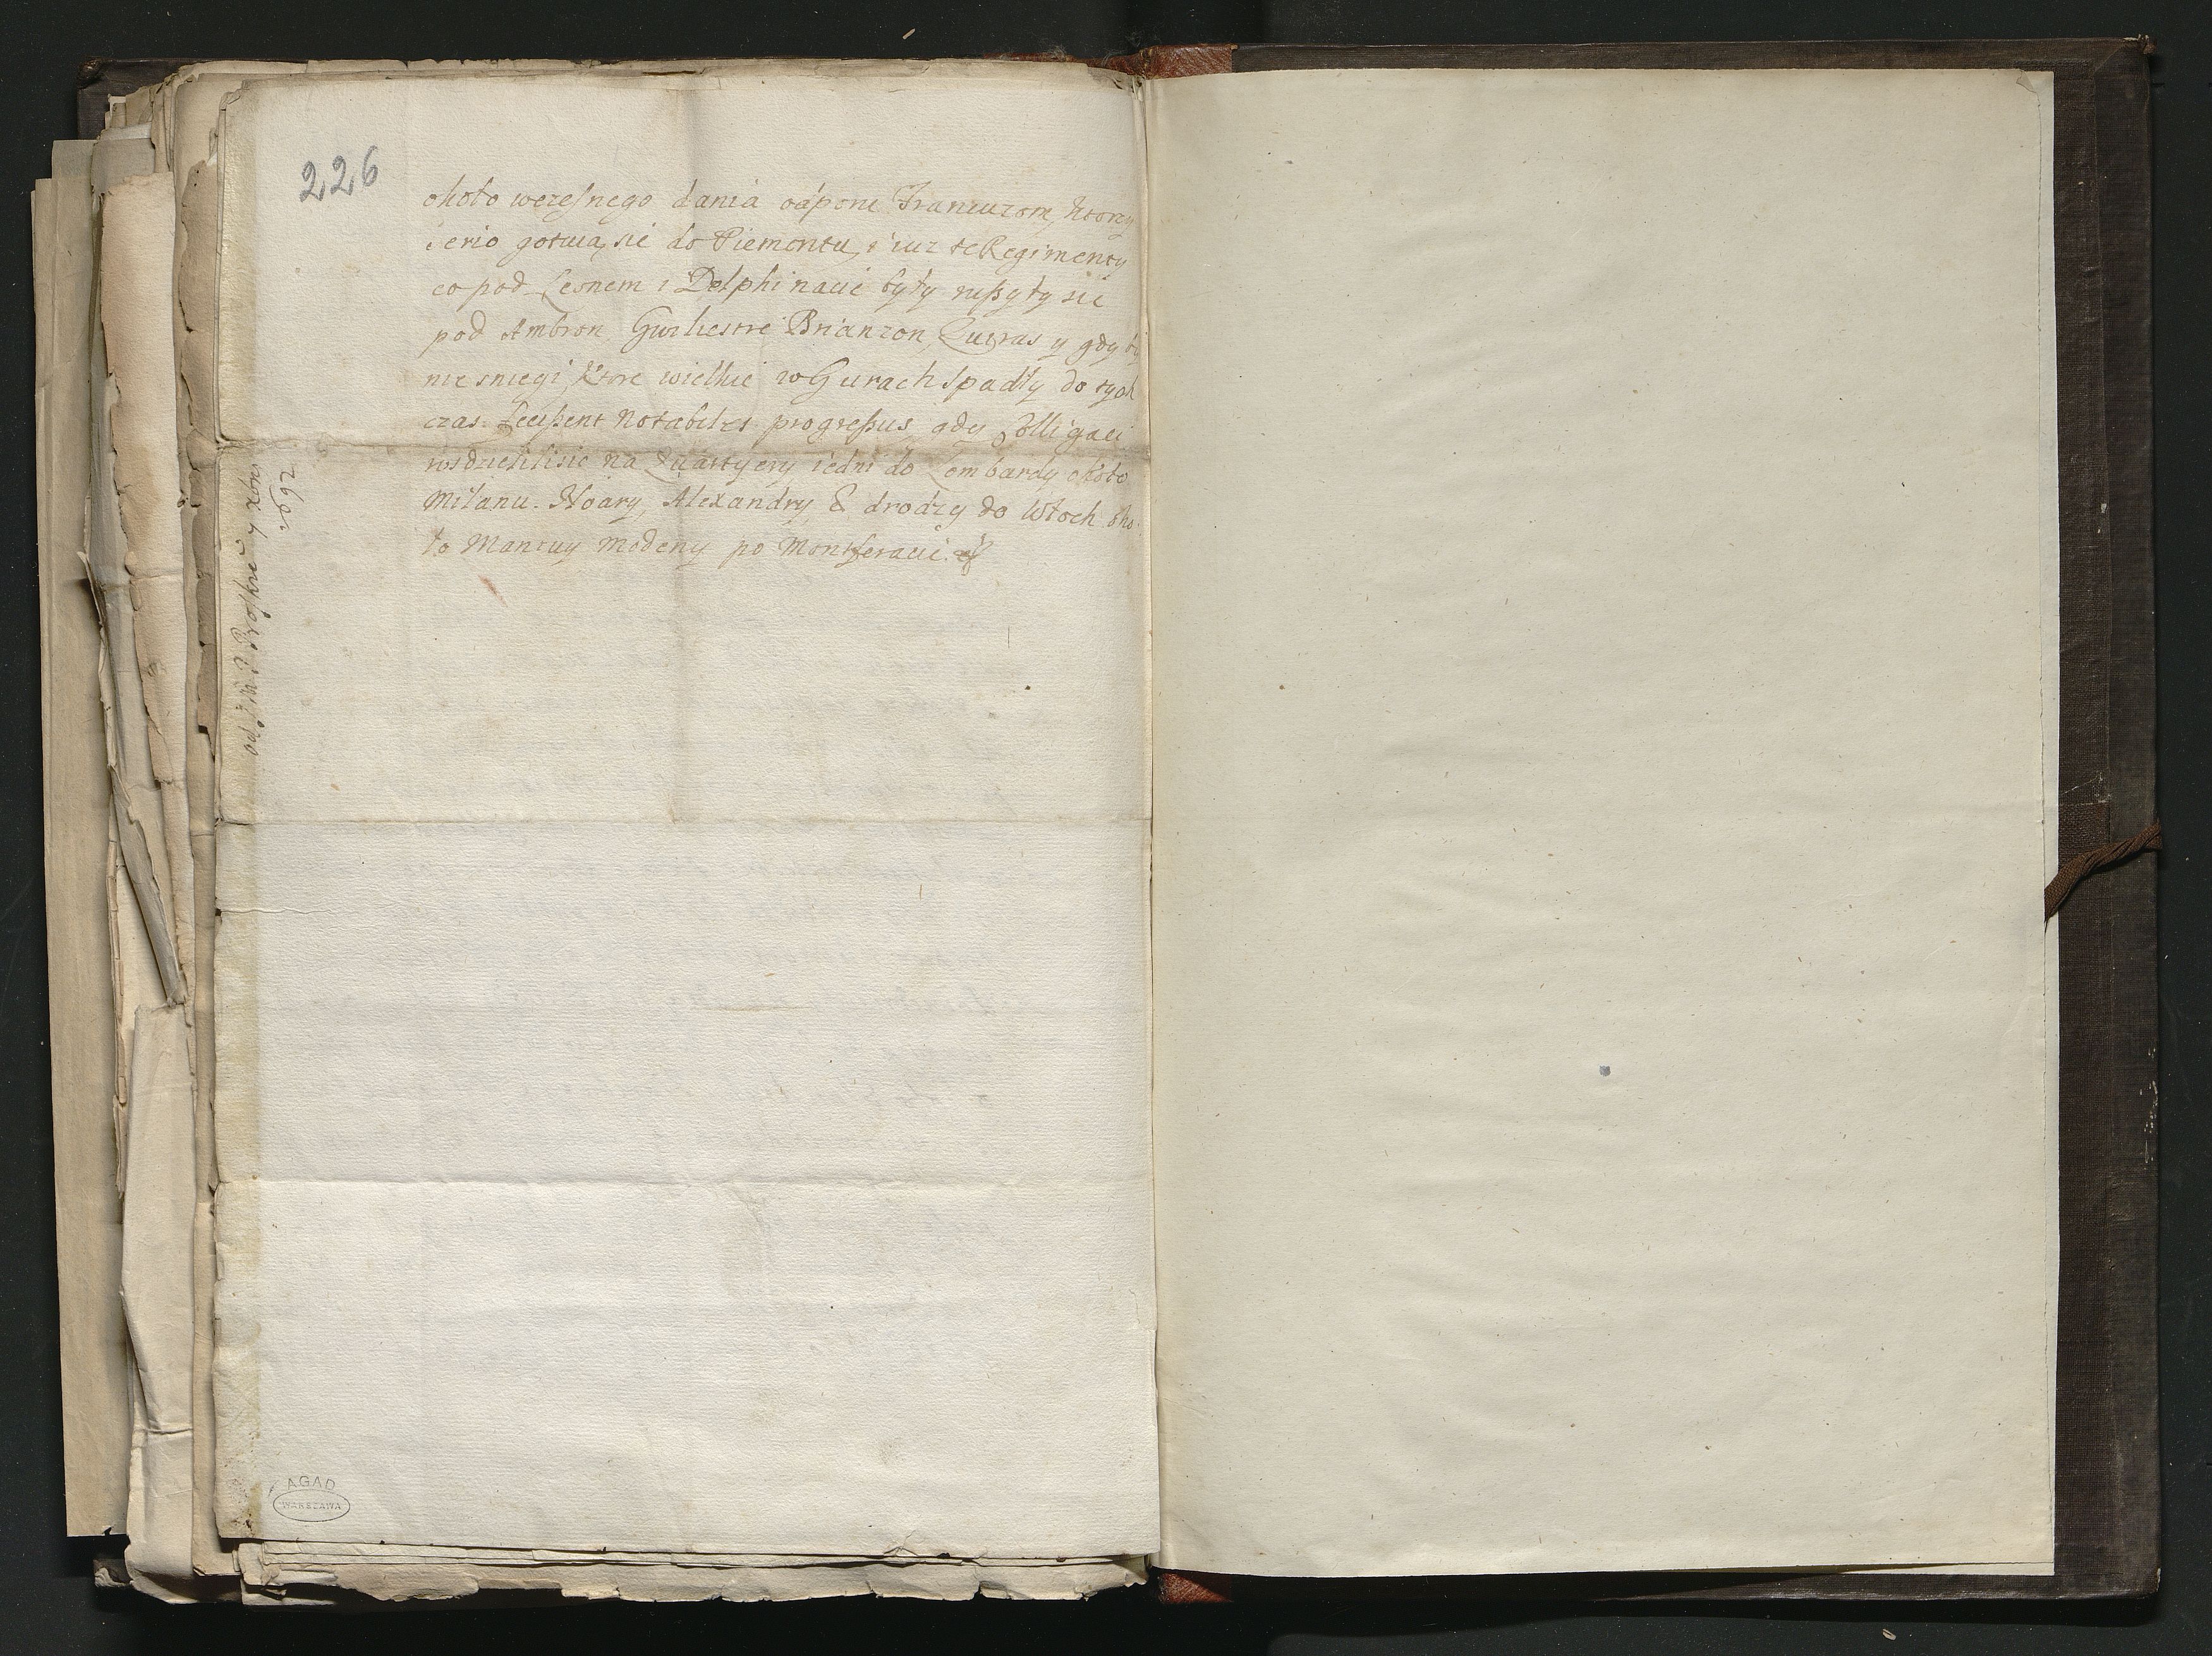 226
około wczesnego dania odporu Francuzom, ktorzy
serio gotuią się do Piemontu, i iuz te Regimenty
co pod Leonem i Delphinacie były ruszyły się
pod Ambron, Gwiliestre Brianzon, Queras y gdy by
nie sniegi ktore wielkie w Gurach spadły do tych
czas fecissent notabiles progressus, gdy Colligaci
rosdzielilisie na Quartyery iedni do Lombardy około
Milanu. Noary, Alexandry & drodzy do Włoch oko
ło Mantuy Modeny po Montferacie.
7 Xbris
1692
AGAD
WARSZAWA